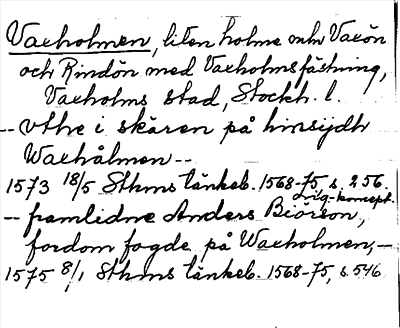 Vaxholmen, liten holme mlr Vaxön
och Rindön med Vaxholms fästning,
Vaxholms stad, Stockh. l.
-- vthe i skären på hinsijdh
Waxhålmen --
1573 18/5 Sthms tänkeb. 1568-75, s. 256.
orig.-koncept.
-- framlidne Anders Biörson,
fordom fogde på Waxholmen, --
1575 8/1 Sthms tänkeb. 1568-75, s. 546